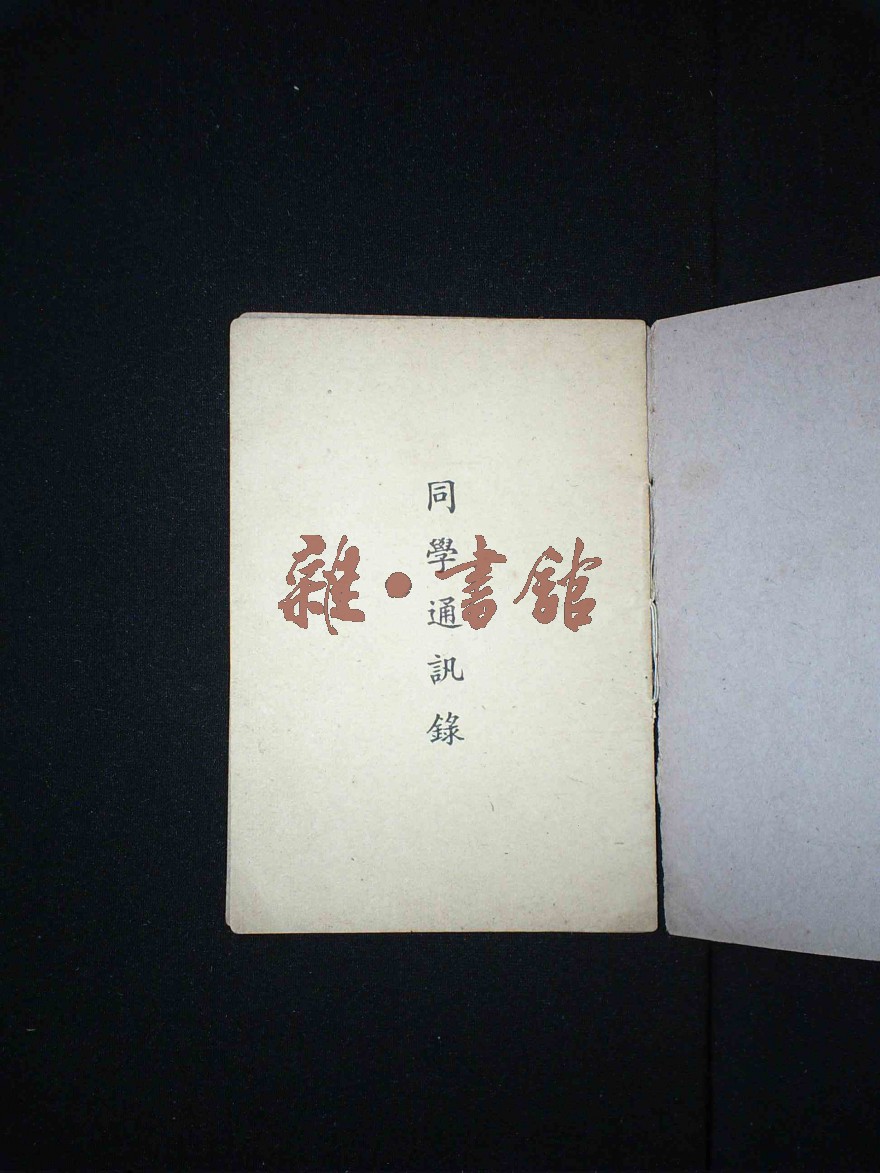 同學通訊錄
雜·書館